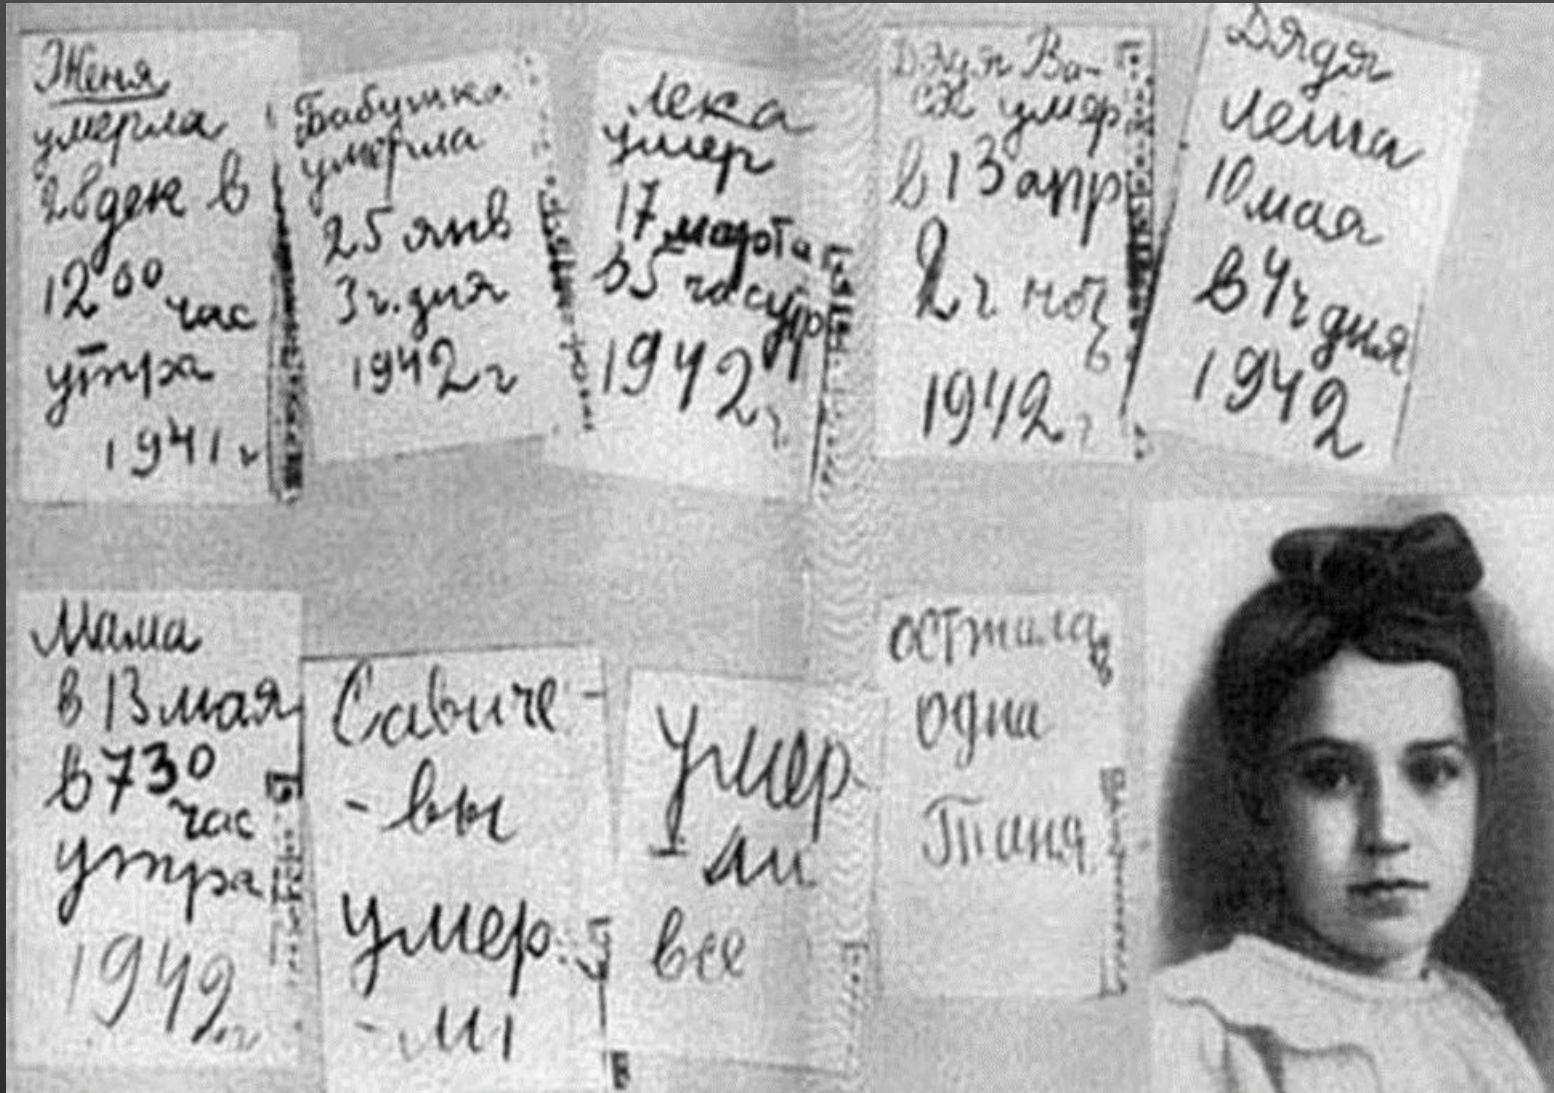 Женя
умерла
28 дек в
12⁰⁰ час
утра
1941 г
Бабушка
умерла
25 янв
3 ч. дня
1942 г
Лека
умер
17 марта
в 5 час утр
1942 г
Дядя Ва-
ся умер
в 13 апр
2 ч ноч
ь
1942 г
Дядя
Леша
10 мая
в 4 ч дня
1942
Мама
в 13 мая
в 7 30
час
утра
1942 г
Савиче-
- вы
умер
- ли
Умер
- ли
все
осталась
одна
Таня